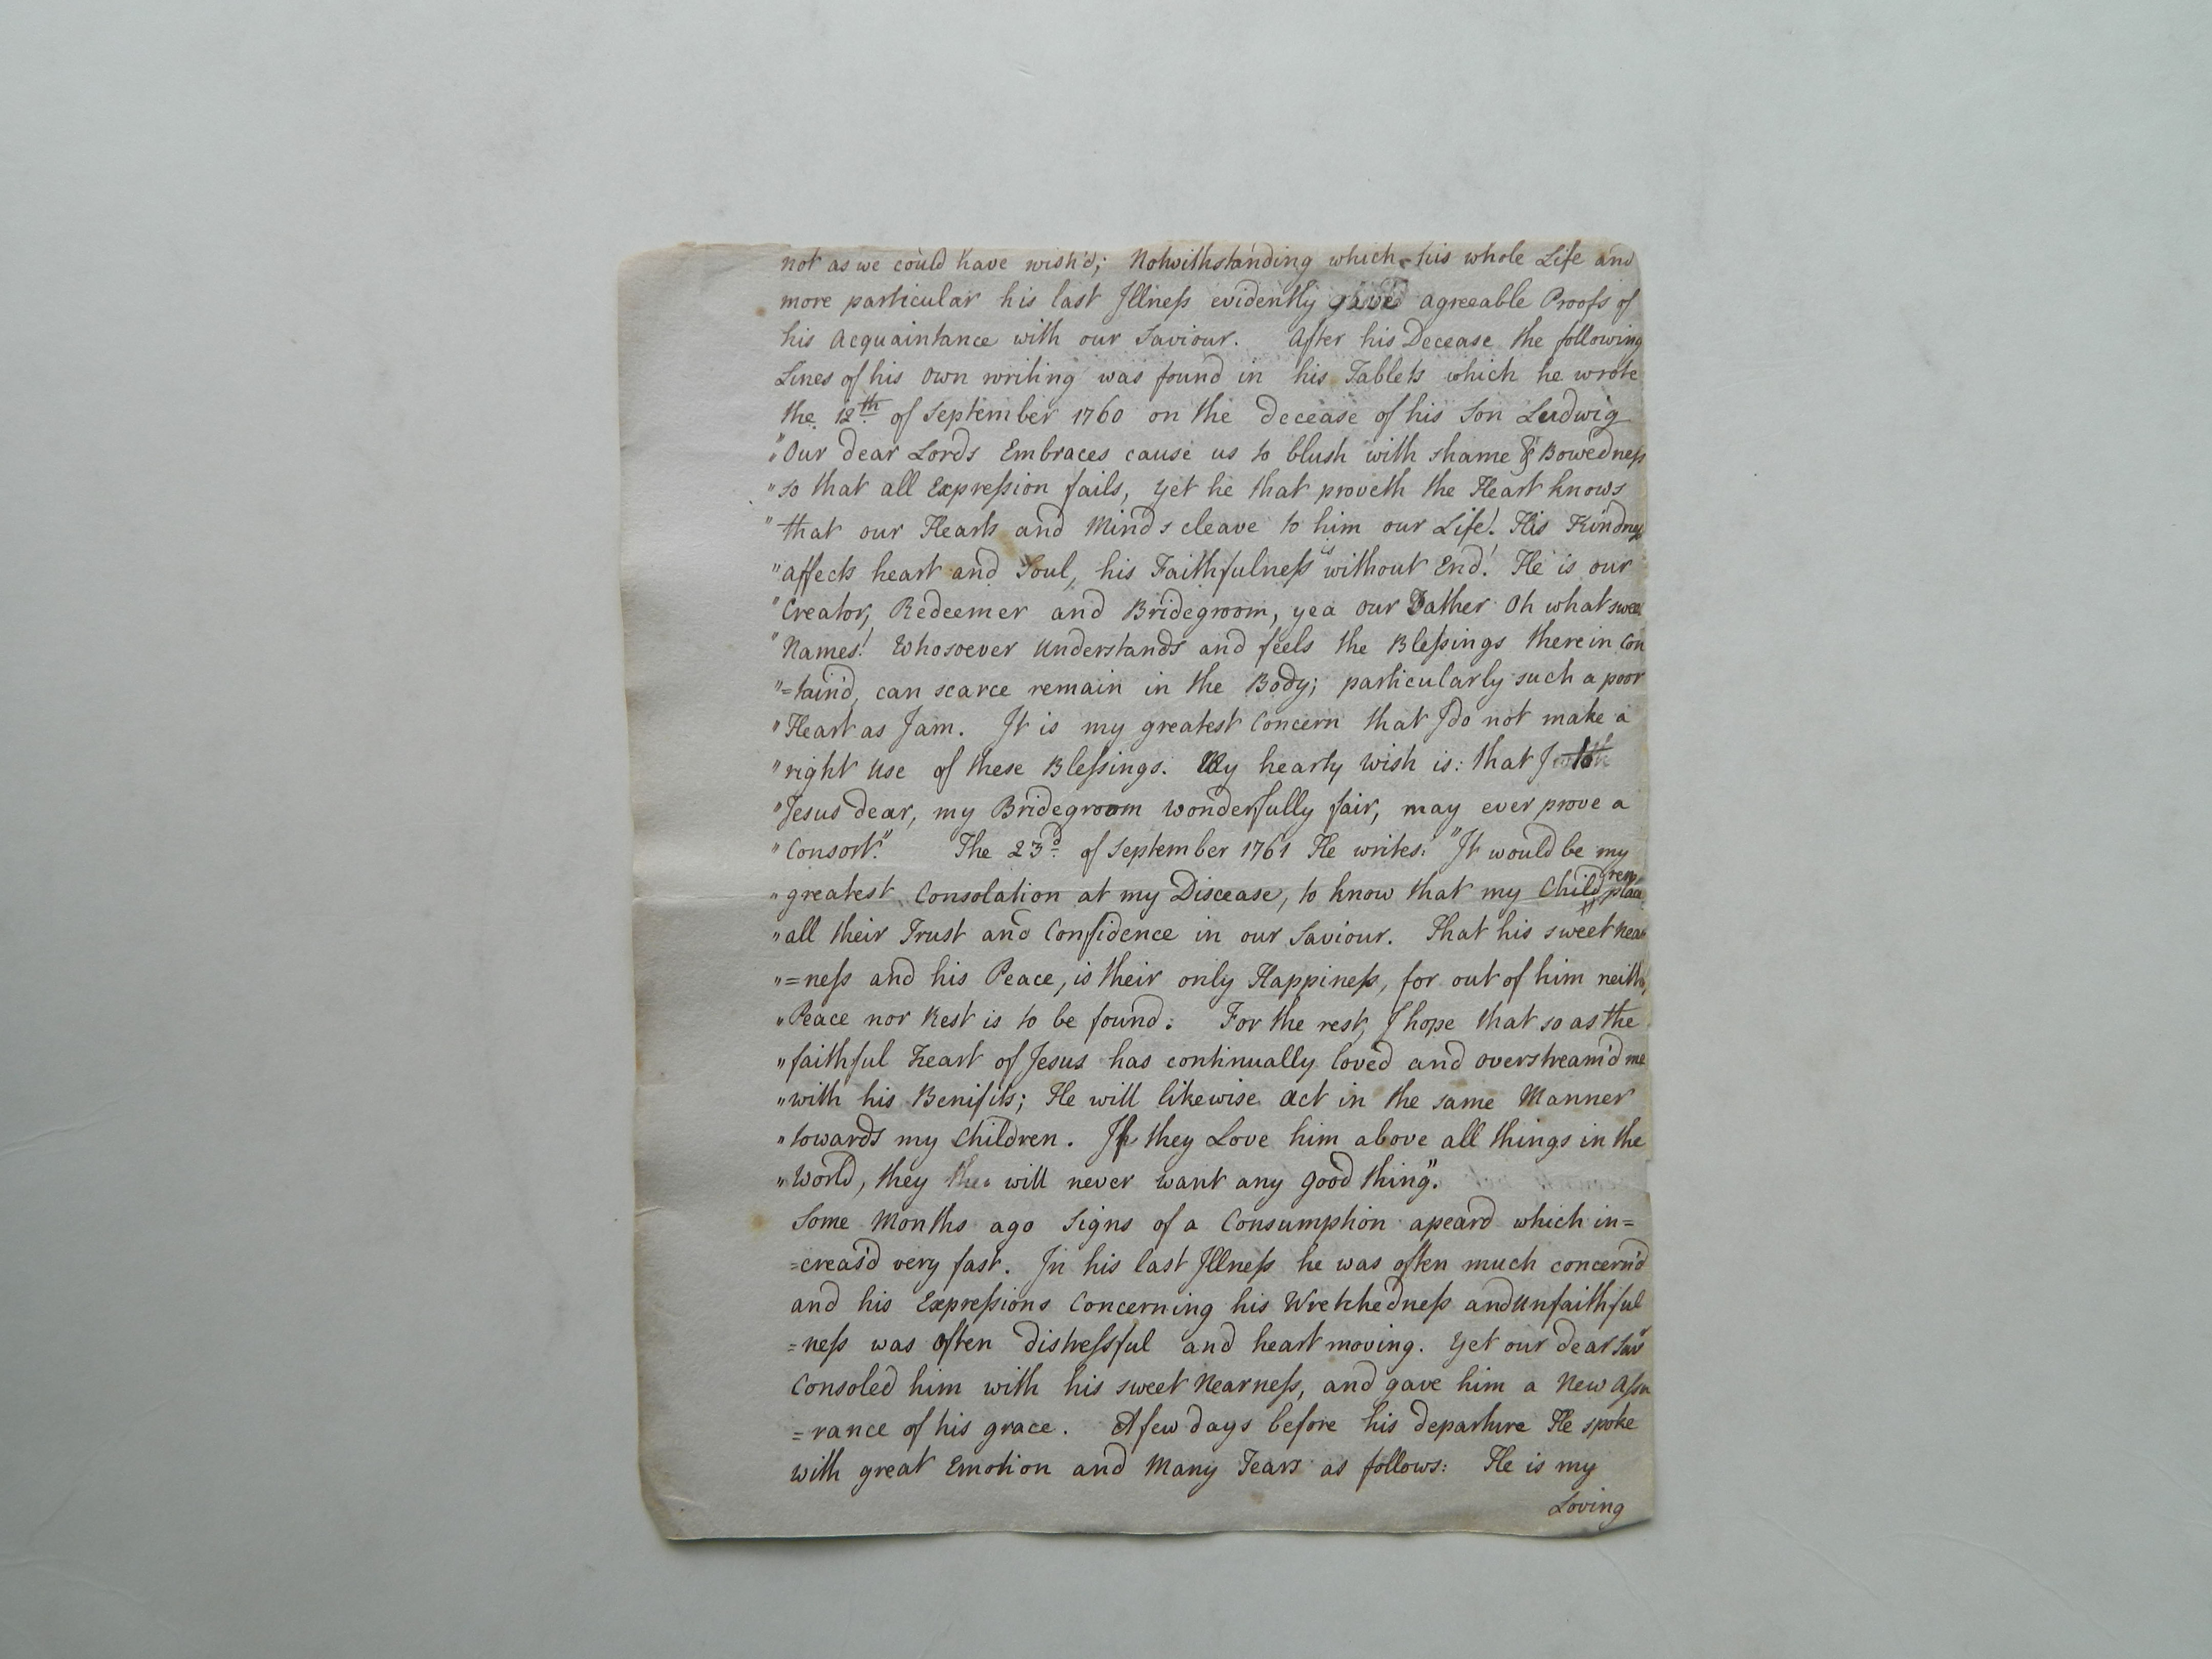 not as we could have wish'd; Notwithstanding which his whole Life and
more particular his last Illneſs evidently gave agreeable Proofs of
his Acquaintance with our Saviour. After his Decease the following
Lines of his own writing was found in his Tablets which he wrote
the 12th of September 1760 on the decease of his Son Ludwig
"Our dear Lords Embraces cause us to blush with shame & Bowedneſs
"so that all Expreſsion fails, yet he that proveth the Heart knows
"that our Hearts and Minds cleave to him our Life! His Kindneſs
"affects heart and Soul, his Faithfulneſs is without End! He is our
"Creator, Redeemer and Bridegroom, yea our Father Oh what swee
"Names! Whosoever Understands and feels the Bleſsings therein Con
"=tain'd, can scarce remain in the Body; particularly such a poor
"Heart as I am. It is my greatest Concern that I do not make a
"right Use of these Bleſsings. My hearty Wish is: that I to
"Jesus dear, my Bridegroom wonderfully fair, may ever prove a
"Consort." The 23d of September 1761 He writes: "It would be my
"greatest Consolation at my Discease, to know that my Children place
"all their Trust and Confidence in our Saviour. That his sweet Near
"=neſs and his Peace, is their only Happineſs, for out of him neither
"Peace nor Rest is to be found. For the rest, I hope that so as the
"faithful heart of Jesus has continually loved and overstream'd me
"with his Benifits; He will likewise act in the same Manner
"towards my Children. If they Love him above all things in the
"World, they will never want any good thing".
Some Months ago Signs of a Consumption apeard which in=
=creas'd very fast. In his last Illneſs he was often much concern'd
and his Expreſsions Concerning his Wretchedneſs and Unfaithful
=neſs was often distreſsful and heart moving. Yet our dear Savr
Consoled him with his sweet Nearneſs, and gave him a New Aſsu
=rance of his grace. A few days before his departure He spoke
with great Emotion and Many Tears as follows: He is my
Loving